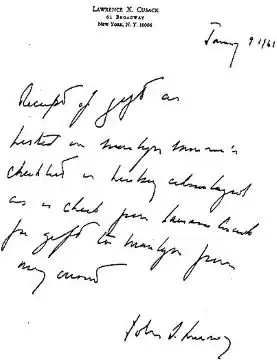 LAWRENCE X. CUSACK
61 BROADWAY
NEW YORK, N.Y. 10006
Receipt of gift as
listed on Marilyn Monroe's
checklist is hereby acknowledged
as is check from
for gift to Marilyn from
my
John F. Kennedy